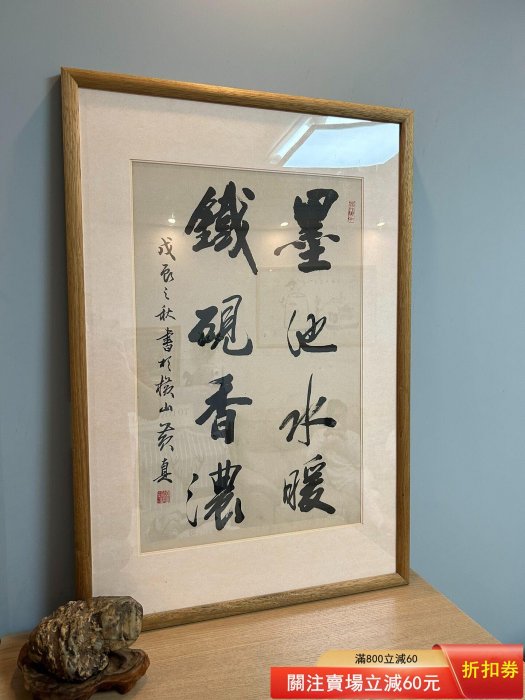 墨池水暖
鐵硯香濃
戊辰之秋書於橫山黃真
滿800立減60
關注賣場立減60元
折扣券